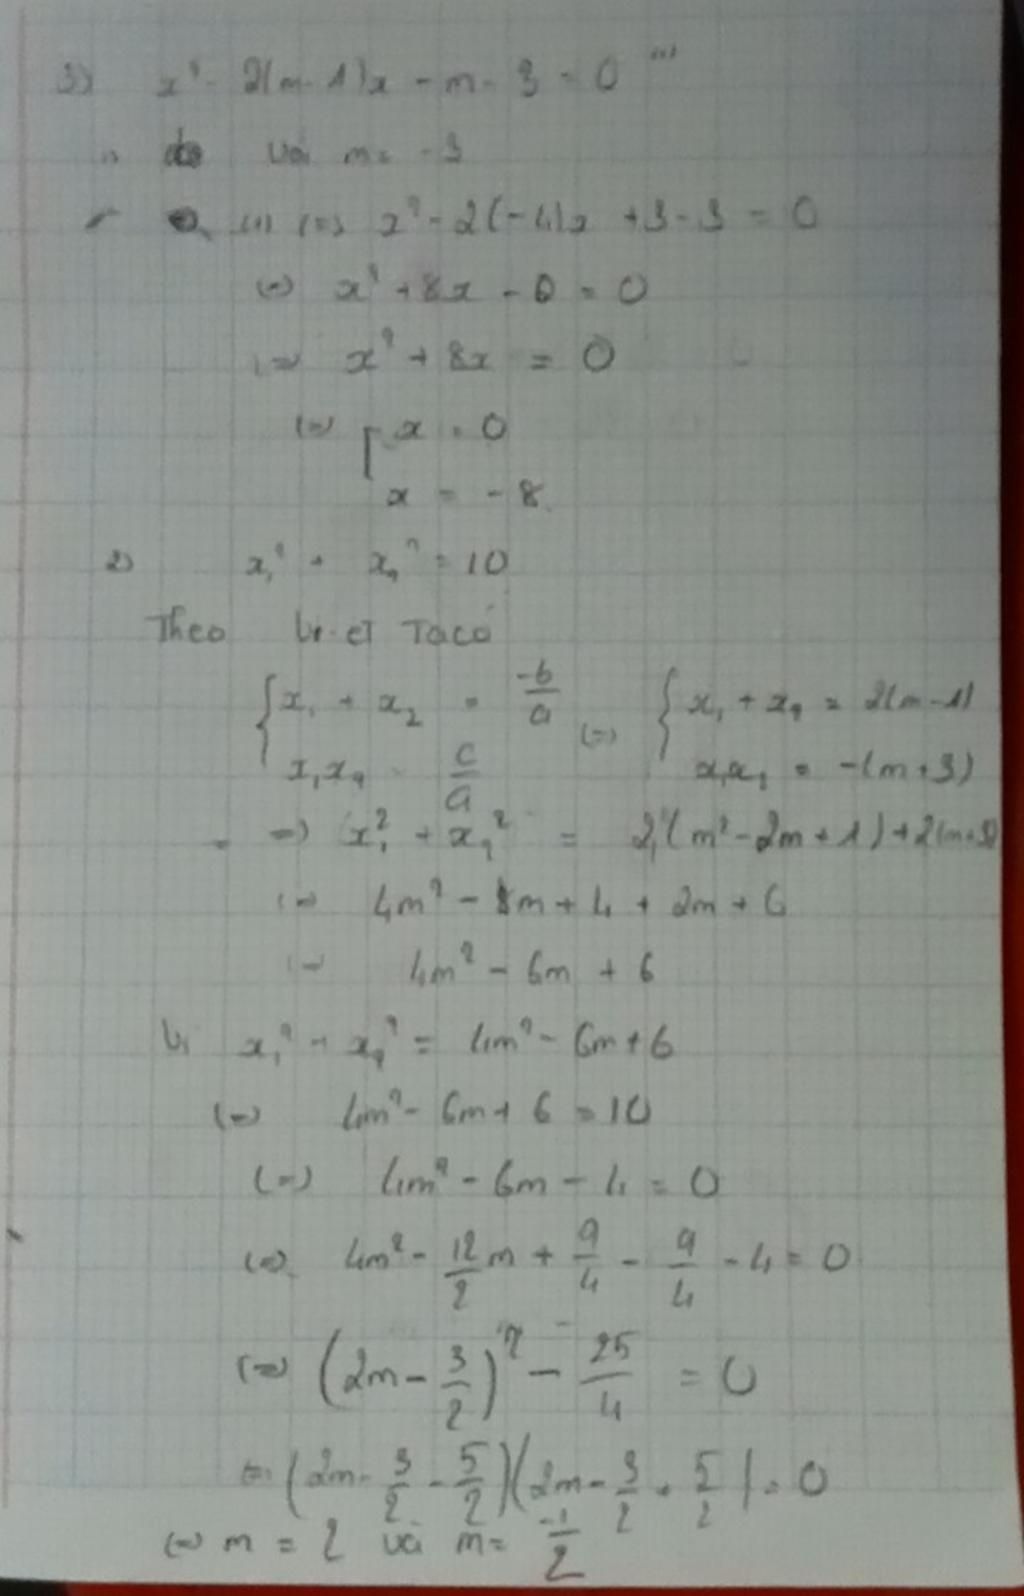 3) x² - 2(m-1)x - m - 3 = 0 (1)
1) với m = -3
(1) (=) x² - 2(-4)x + 3 - 3 = 0
(=) x² + 8x - 0 = 0
(=) x² + 8x = 0
(=) [ x = 0
x = -8
2) x₁² + x₂² = 10
Theo Vi-et Ta có
{ x₁ + x₂ = -b/a (=) { x₁ + x₂ = 2(m-1)
x₁x₂ = c/a x₁x₂ = -(m+3)
=) x₁² + x₂² = 2²(m² - 2m + 1) + 2(m+3)
(=) 4m² - 8m + 4 + 2m + 6
(=) 4m² - 6m + 6
Vì x₁² + x₂² = 4m² - 6m + 6
(=) 4m² - 6m + 6 = 10
(=) 4m² - 6m - 4 = 0
(=) 4m² - 12/2 m + 9/4 - 9/4 - 4 = 0
(=) (2m - 3/2)² - 25/4 = 0
(=) (2m - 3/2 - 5/2)(2m - 3/2 + 5/2) = 0
(=) m = 2 và m = -1/2